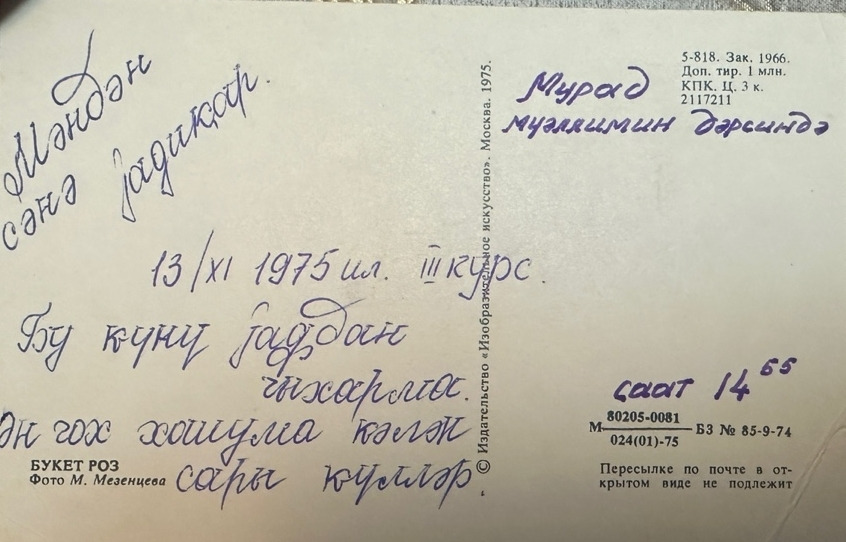 Мəндəн
сəнə јадиҝар.
13/XI 1975 ил. III курс.
Бу ҝүнү јаддан
чыхарма.
Əн чох хошума ҝəлəн
сары ҝүллəр
БУКЕТ РОЗ
Фото М. Мезенцева
© Издательство «Изобразительное искусство». Москва. 1975.
5-818. Зак. 1966.
Доп. тир. 1 млн.
КПК. Ц. 3 к.
2117211
Мурад
мүəллимин дəрсиндə
саат 14⁵⁵
М 80205-0081 / 024(01)-75 БЗ № 85-9-74
Пересылке по почте в от-
крытом виде не подлежит